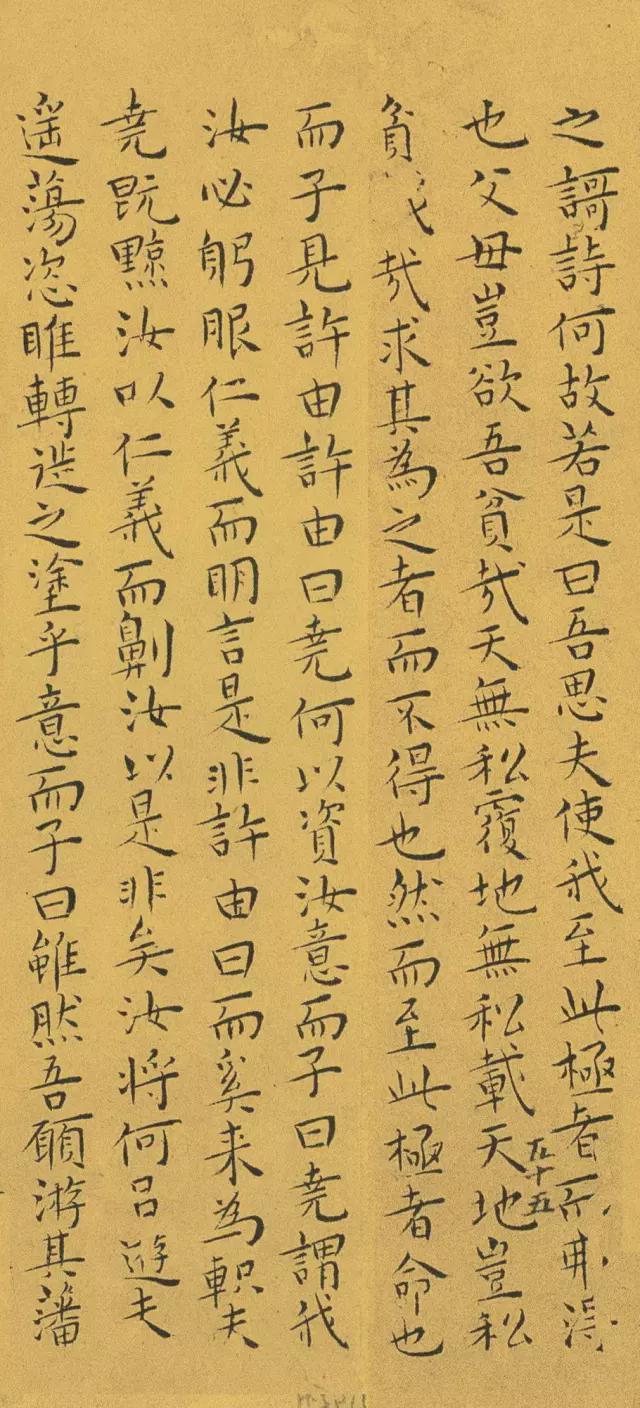 之謌詩何故若是曰吾思夫使我至此極者而弗得
也父母豈欲吾貧哉天無私覆地無私載天地豈私
五十五
貧我哉求其為之者而不得也然而至此極者命也
而子見許由許由曰尭何以資汝意而子曰尭謂我
汝必躬服仁義而明言是非許由曰而奚来為軹夫
尭既黥汝以仁義而劓汝以是非矣汝将何以遊夫
遥蕩恣睢轉徙之塗乎意而子曰雖然吾願游其藩